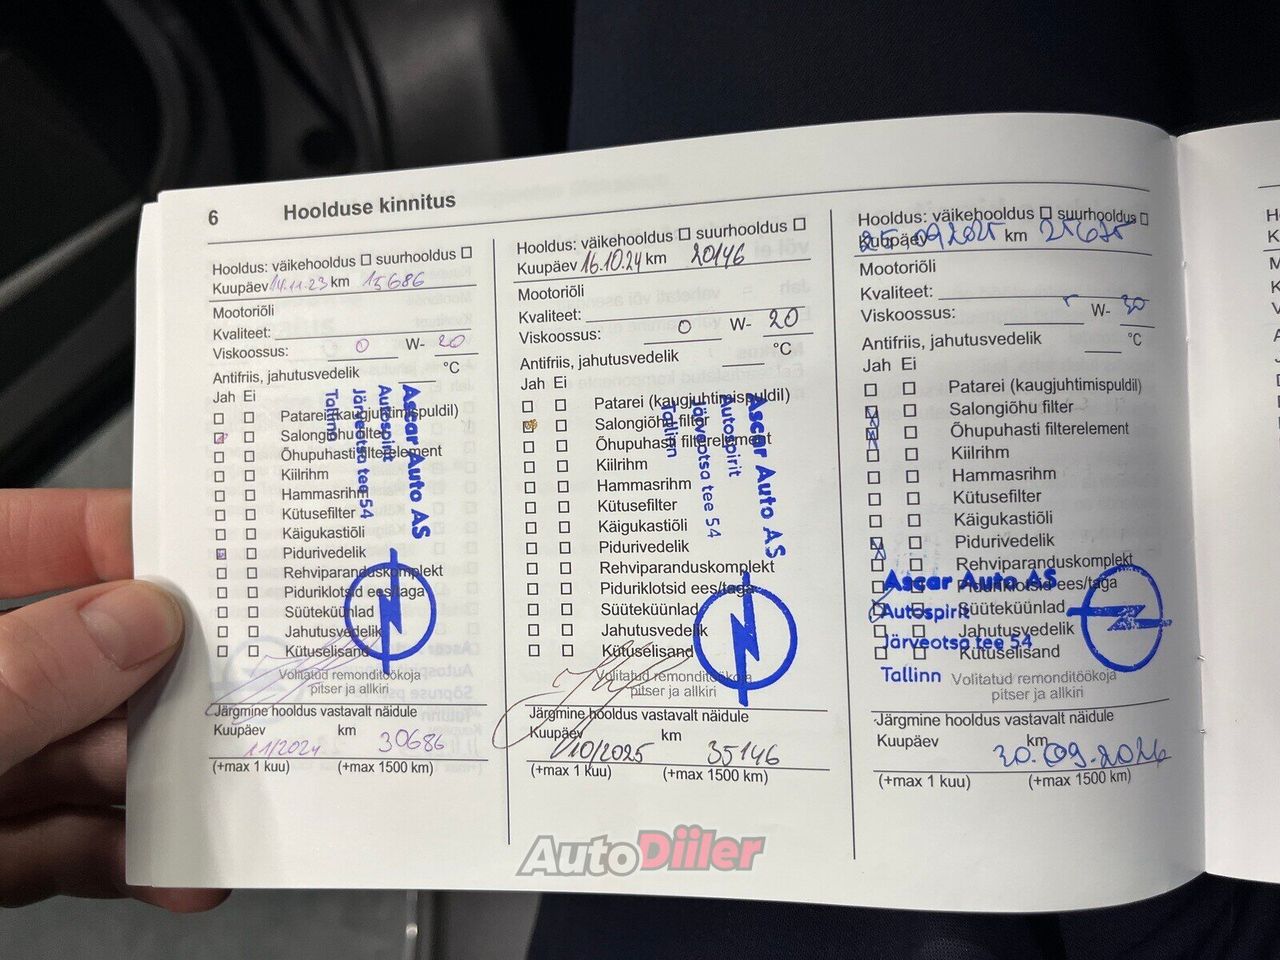 6 Hoolduse kinnitus
Hooldus: väikehooldus suurhooldus
Kuupäev 14.11.23 km 15686
Mootoriõli
Kvaliteet:
Viskoossus: 0 W- 20
Antifriis, jahutusvedelik °C
Jah Ei
Patarei (kaugjuhtimispuldil)
Salongiõhu filter
Õhupuhasti filterelement
Kiilrihm
Hammasrihm
Kütusefilter
Käigukastiõli
Pidurivedelik
Rehviparanduskomplekt
Piduriklotsid ees/taga
Süüteküünlad
Jahutusvedelik
Kütuselisand
Ascar Auto AS
Autospirit
Järveotsa tee 54
Tallinn
Volitatud remonditöökoja
pitser ja allkiri
Järgmine hooldus vastavalt näidule
Kuupäev km
11/2024 30686
(+max 1 kuu) (+max 1500 km)
Hooldus: väikehooldus suurhooldus
Kuupäev 16.10.24 km 20146
Mootoriõli
Kvaliteet:
Viskoossus: 0 W- 20
Antifriis, jahutusvedelik °C
Jah Ei
Patarei (kaugjuhtimispuldil)
Salongiõhu filter
Õhupuhasti filterelement
Kiilrihm
Hammasrihm
Kütusefilter
Käigukastiõli
Pidurivedelik
Rehviparanduskomplekt
Piduriklotsid ees/taga
Süüteküünlad
Jahutusvedelik
Kütuselisand
Ascar Auto AS
Autospirit
Järveotsa tee 54
Tallinn
Volitatud remonditöökoja
pitser ja allkiri
Järgmine hooldus vastavalt näidule
Kuupäev km
10/2025 35146
(+max 1 kuu) (+max 1500 km)
Hooldus: väikehooldus suurhooldus
Kuupäev 25.09.2025 km 25675
Mootoriõli
Kvaliteet:
Viskoossus: W- 30
Antifriis, jahutusvedelik °C
Jah Ei
Patarei (kaugjuhtimispuldil)
Salongiõhu filter
Õhupuhasti filterelement
Kiilrihm
Hammasrihm
Kütusefilter
Käigukastiõli
Pidurivedelik
Rehviparanduskomplekt
Piduriklotsid ees/taga
Süüteküünlad
Jahutusvedelik
Kütuselisand
Ascar Auto AS
Autospirit
Järveotsa tee 54
Tallinn
Volitatud remonditöökoja
pitser ja allkiri
Järgmine hooldus vastavalt näidule
Kuupäev km
30.09.2026
(+max 1 kuu) (+max 1500 km)
AutoDiiler